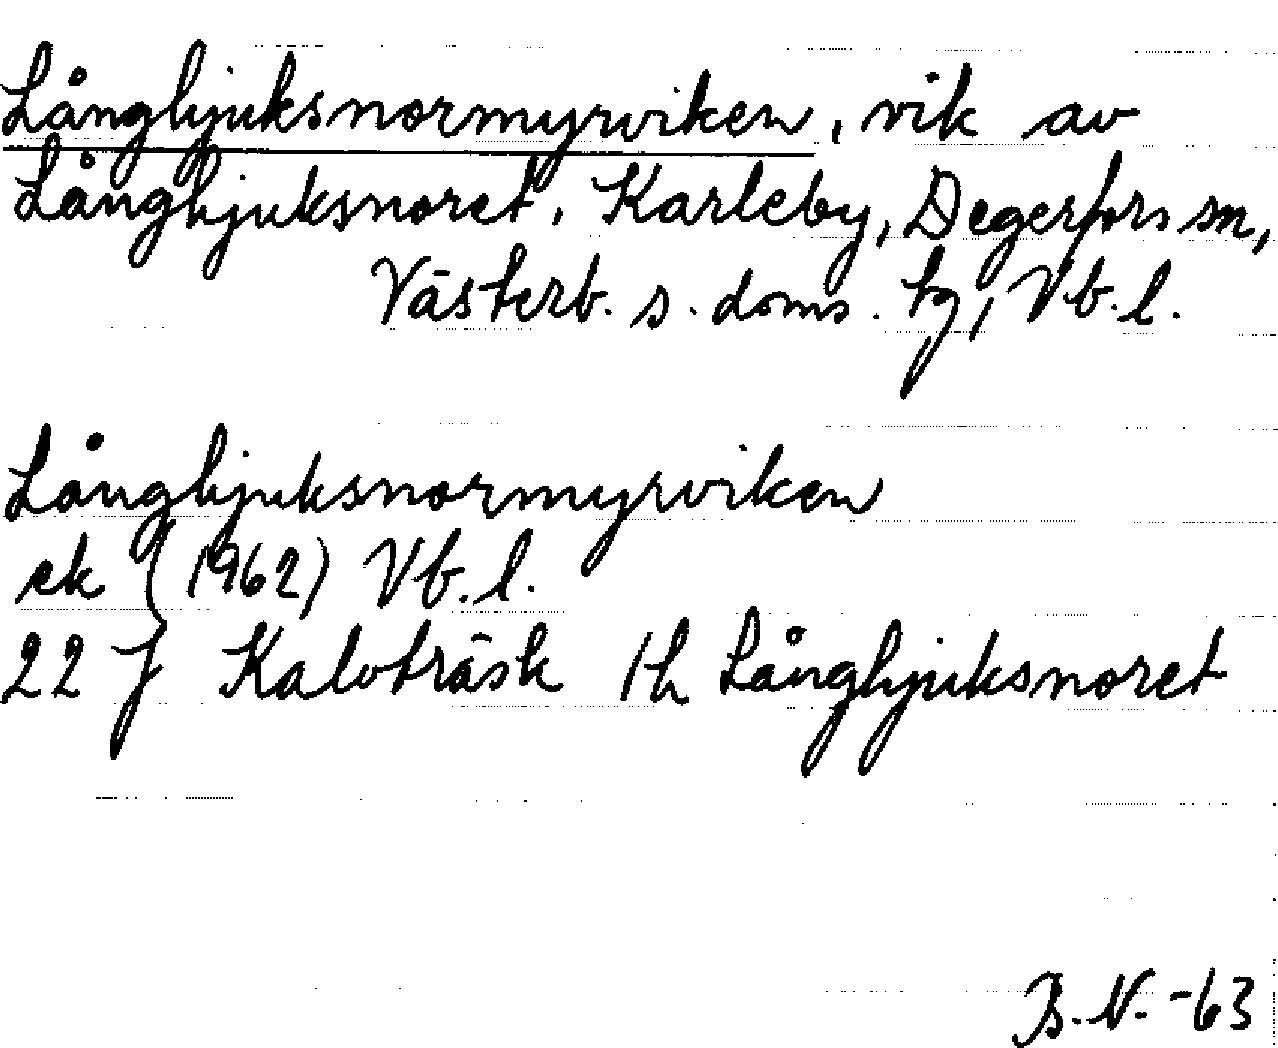 Långhjuksnormyrviken, vik av
Långhjuksnoret, Karleby, Degerfors sn,
Västerb. s. doms. tg, Vb. l.
Långhjuksnormyrviken
ek (1962) Vb. l.
22 J Kalvträsk 1h Långhjuksnoret
B. N. -63